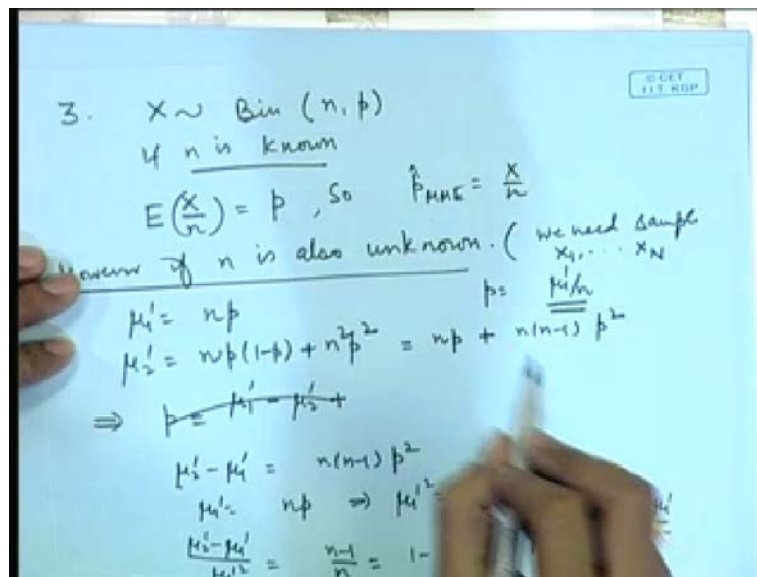 © CET
I.I.T. KGP
3. X ~ Bin (n, p)
If n is known
E(X/n) = p, So p̂_MME = X/n
However if n is also unknown. (We need sample
X₁, ... X_N
μ₁' = np
p = μ₁'/n
μ₂' = np(1-p) + n²p² = np + n(n-1) p²
⇒ p = μ₁' - μ₂' +
μ₂' - μ₁' = n(n-1) p²
μ₁' = np ⇒ μ₁'² =
μ₁'
(μ₂' - μ₁')/μ₁'² = (n-1)/n = 1-